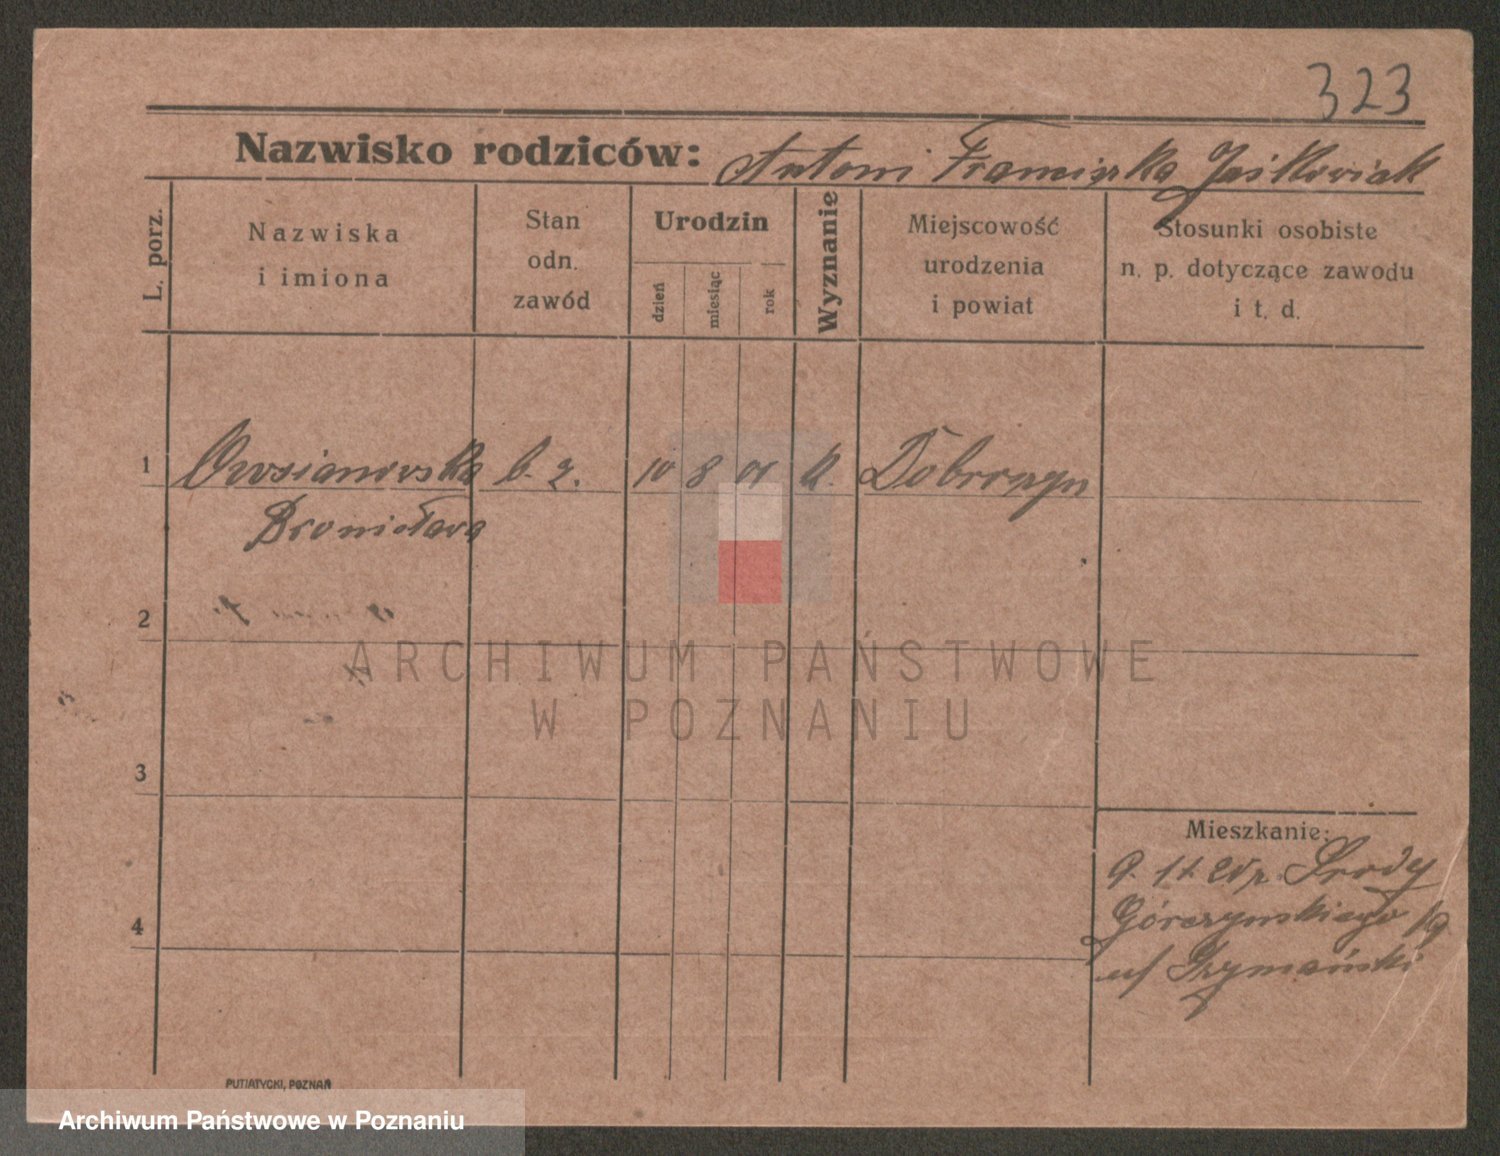 323
Nazwisko rodziców: Antoni Franciszka Jaśkowiak
L. porz.
Nazwiska
i imiona
Stan
odn.
zawód
Urodzin
dzień
miesiąc
rok
Wyznanie
Miejscowość
urodzenia
i powiat
Stosunki osobiste
n. p. dotyczące zawodu
i t. d.
1 Owsianowska b. z. 10 8 01 k. Dobrzyn
Bronisława
2
ARCHIWUM PAŃSTWOWE
W POZNANIU
3
Mieszkanie:
Środy
Górczyńskiego 19
Szymański
4
PUTIATYCKI, POZNAŃ
Archiwum Państwowe w Poznaniu